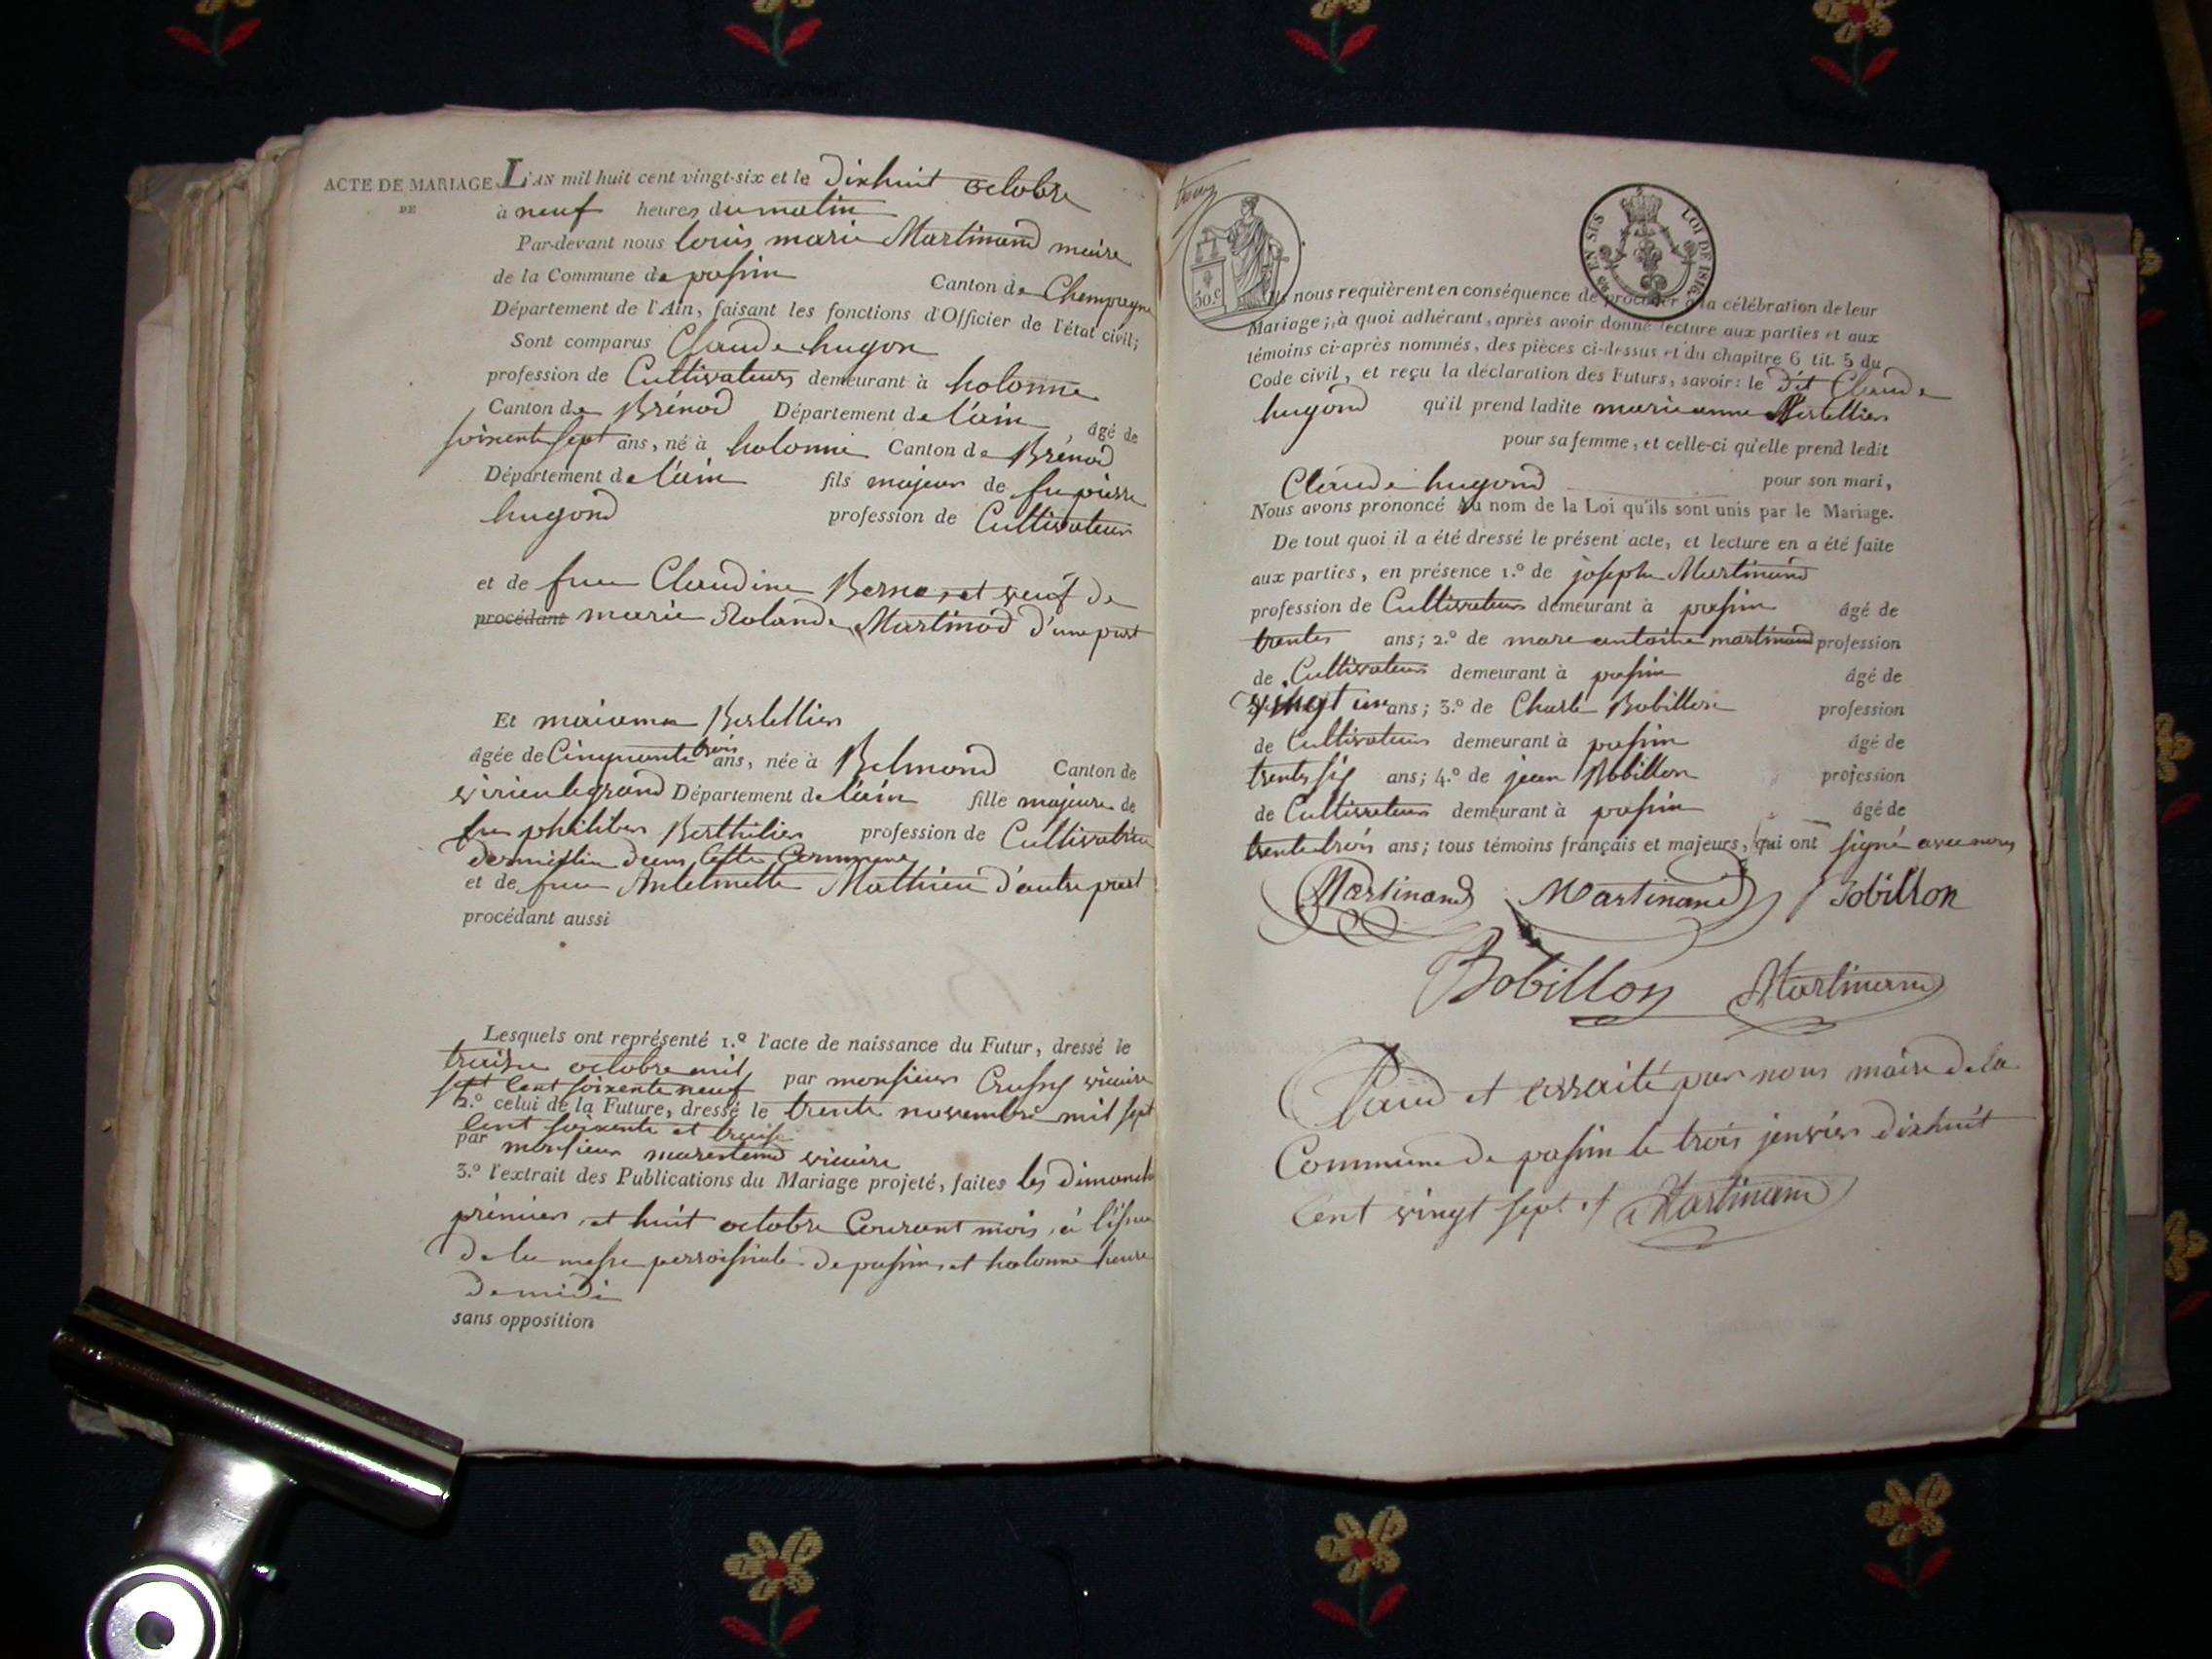 ACTE DE MARIAGE
DE
L'AN mil huit cent vingt-six et le dixhuit octobre
à neuf heures du matin
Par-devant nous louis marie Martinand maire
de la Commune de passin Canton de Champagne
Département de l'Ain, faisant les fonctions d'Officier de l'état civil;
Sont comparus Claude hugon
profession de Cultivateur demeurant à holonne
Canton de Brénod Département de l'ain âgé de
soixante sept ans, né à holonne Canton de Brénod
Département de l'ain fils majeur de fu pierre
hugond profession de Cultivateur
et de fue Claudine et veuf de
procédant marie Rolande Martinod d'une part
Et Bertellier
âgée de Cinquante trois ans, née à Belmond Canton de
virieu legrand Département de l'ain fille majeure de
fu philiber Berthilier profession de Cultivatrice
dans Cette Commune
et de fue Antelmette Mathieu d'autre part
procédant aussi
Lesquels ont représenté 1.º l'acte de naissance du Futur, dressé le
octobre mil
sept Cent soixente neuf par monsieur vicaire
2.º celui de la Future, dressé le trente novembre mil sept
Cent soixente et treize
par monsieur vicaire
3.º l'extrait des Publications du Mariage projeté, faites les dimanche
prémier et huit octobre Courant mois, à l'issue
de la messe perroissiale de passin et holonne heure
de midi
sans opposition
50 C
EN SUS LOI DE 1816
Ils nous requièrent en conséquence de procéder à la célébration de leur
Mariage; à quoi adhérant, après avoir donné lecture aux parties et aux
témoins ci-après nommés, des pièces ci-dessus et du chapitre 6 tit. 5 du
Code civil, et reçu la déclaration des Futurs, savoir: le dit Claude
hugond qu'il prend ladite marie anne Bertellier
pour sa femme, et celle-ci qu'elle prend ledit
Claude hugond pour son mari,
Nous avons prononcé Au nom de la Loi qu'ils sont unis par le Mariage.
De tout quoi il a été dressé le présent acte, et lecture en a été faite
aux parties, en présence 1.º de joseph Martinand
profession de Cultivateur demeurant à passin âgé de
trente ans; 2.º de marc antoine martinand profession
de Cultivateur demeurant à passin âgé de
vingt un ans; 3.º de Charle Bobillon profession
de Cultivateur demeurant à passin âgé de
trente six ans; 4.º de jean Bobillon profession
de Cultivateur demeurant à passin âgé de
trente trois ans; tous témoins français et majeurs, qui ont signé avec nous
Martinand Martinand Bobillon
Bobillon Martinand
et arraité par nous maire de la
Commune de passin le trois jenvier dixhuit
Cent vingt sept Martinand